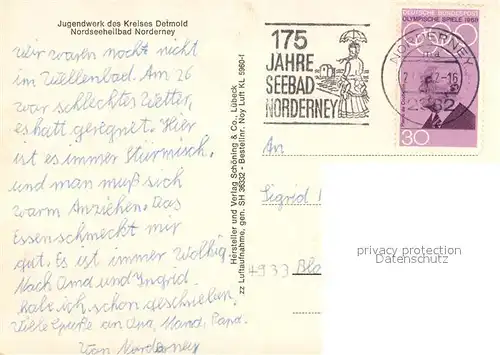 Jugendwerk des Kreises Detmold
Nordseeheilbad Norderney
wir waren noch nicht
im Wellenbad. Am 26
war schlechtes Wetter,
es hatt geregnet. Hier
ist es immer Stürmisch.
und man muß sich
warm Anziehen. Das
Essen schmeckt mir
gut. Es ist immer Wolkig
Nach Oma und Ingrid
habe ich schon geschrieben,
Viele Grüße an Opa, Mand. Papa.
Von Norderney
Hersteller und Verlag Schöning & Co., Lübeck
zz Luftaufnahme, gen. SH 36332 - Bestellnr. Noy Luft KL 5960-f
175
JAHRE
SEEBAD
NORDERNEY
DEUTSCHE BUNDESPOST
OLYMPISCHE SPIELE 1968
30
NORDERNEY
2982
An
Sigrid
4933 Blo
privacy protection
www.ansichtskartenversand.com